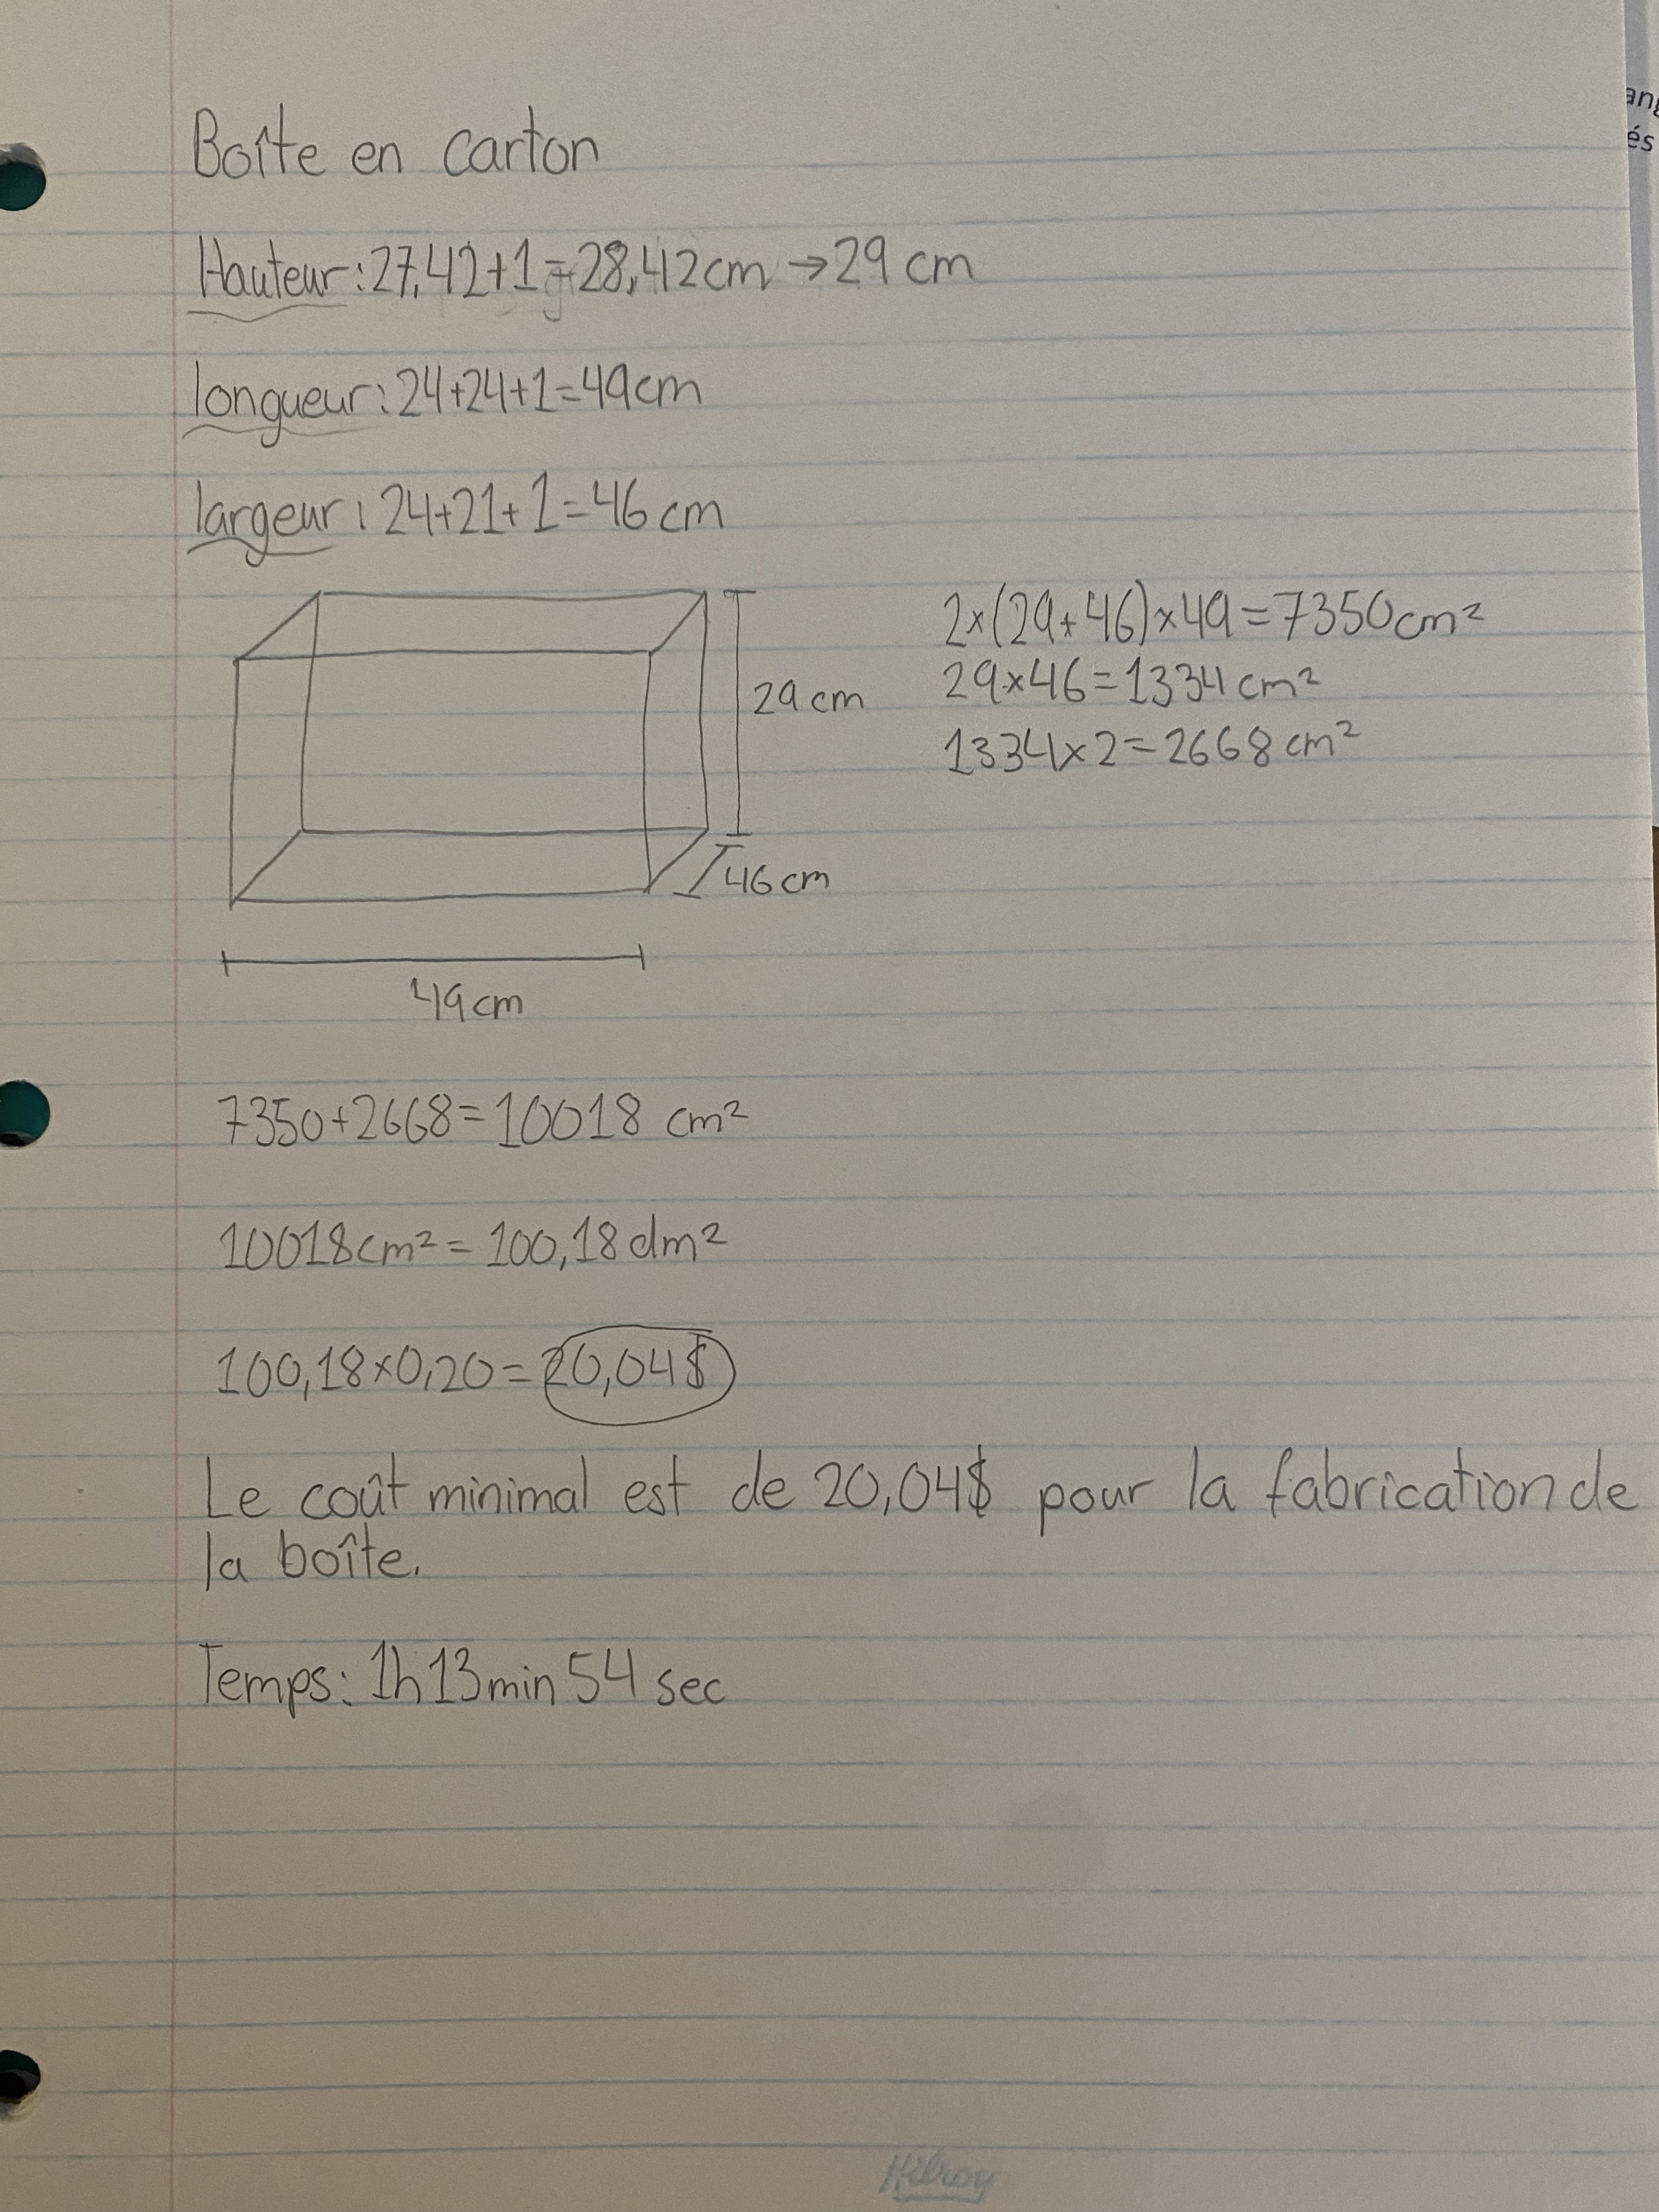 Boîte en carton
Hauteur: 27,42+1=28,42cm →29 cm
longueur: 24+24+1=49cm
largeur: 24+21+1=46 cm
2×(29+46)×49=7350cm²
29×46=1334 cm²
1334×2=2668 cm²
29 cm
46 cm
49 cm
7350+2668=10018 cm²
10018cm²= 100,18 dm²
100,18×0,20=20,04$
Le coût minimal est de 20,04$ pour la fabrication de
la boîte.
Temps: 1h13min 54 sec
Hilroy
és